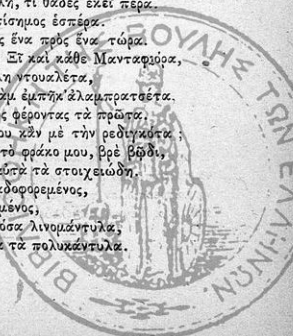 τί θάδες ἐκεῖ πέρα.
πίσημος ἑσπέρα.
ς ἕνα πρὸς ἕνα τώρα.
Ξῖ καὶ κάθε Μανταφιόρα,
λη ντουαλέτα,
αμ ἐμπῆκ' ἀλαμπρατσέτα.
ς φέροντας τὰ πρῶτα.
ου κἂν μὲ τὴν ρεδιγκότα ;
τὸ φράκο μου, βρὲ βῶδι,
αὐτὰ τὰ στοιχειώδη.
δοφορεμένος,
μένος,
όσα λινομάντυλα,
α τα πολυκάντυλα.
ΒΙΒΛ ΒΟΥΛΗΣ ΤΩΝ ΕΛΛΗΝΩΝ